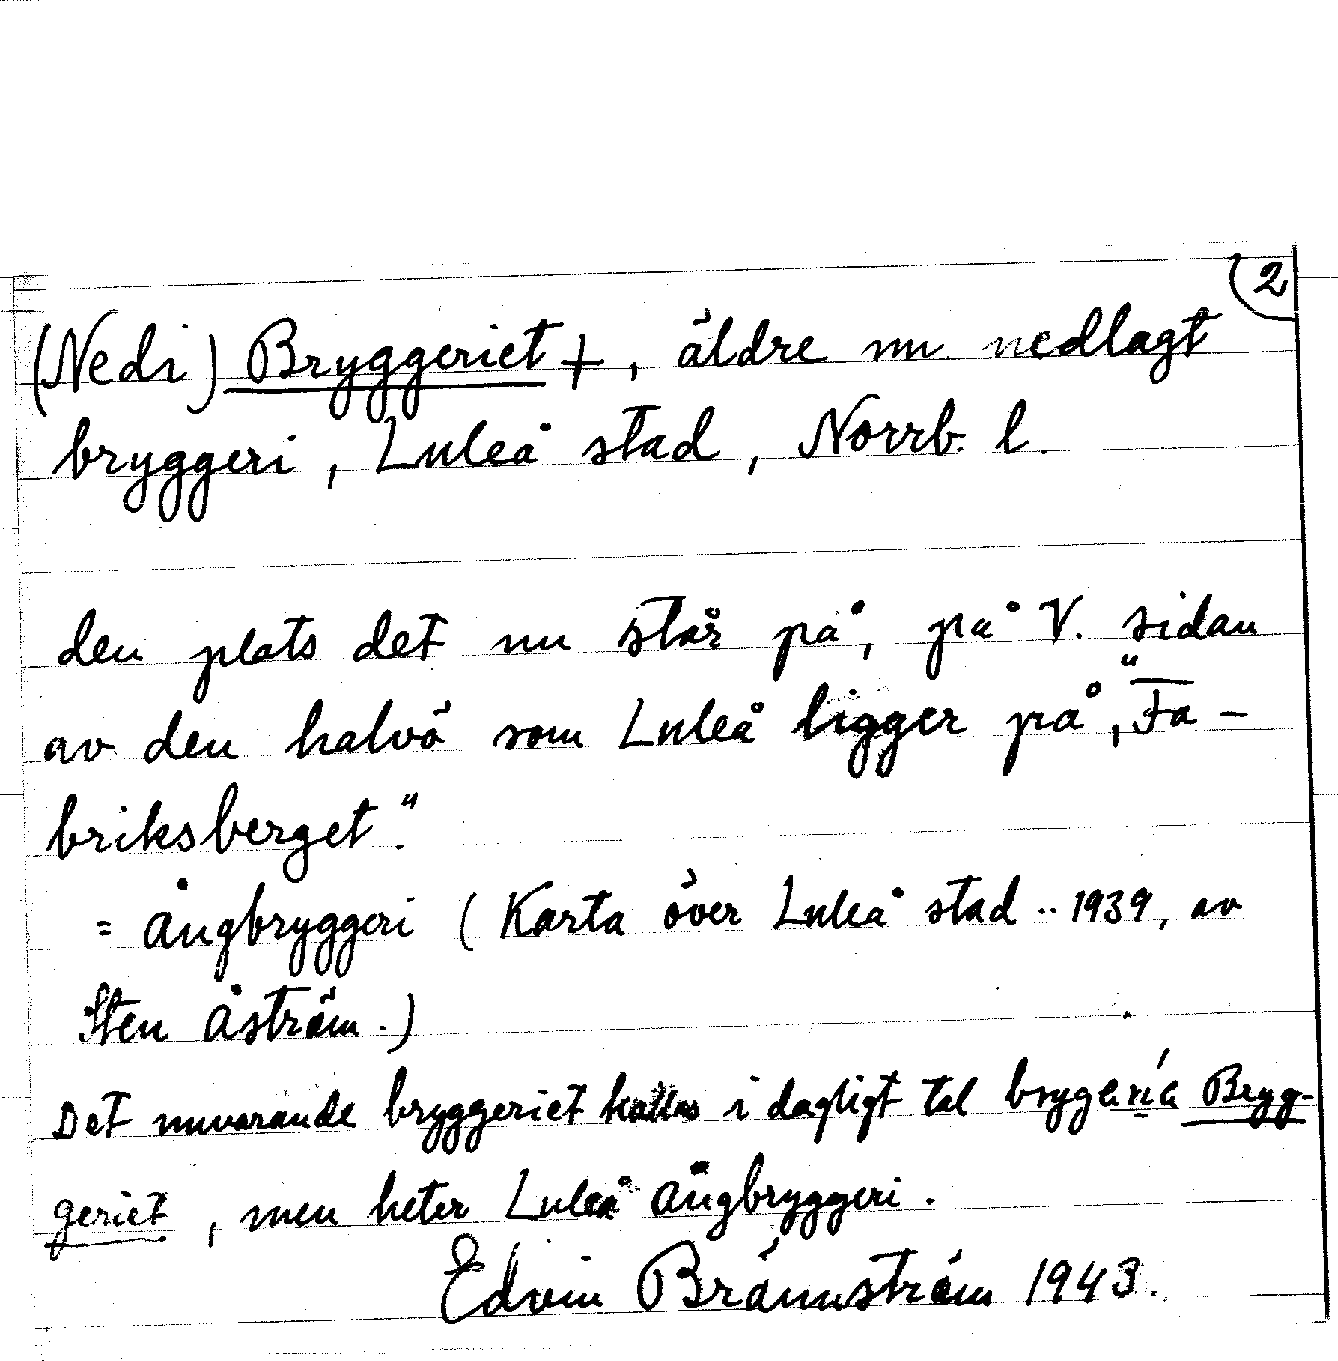 2
(Nedi) Bryggeriet +, äldre nu nedlagt
bryggeri, Luleå stad, Norrb. l.
den plats det nu står på, på V. sidan
av den halvö som Luleå ligger på, "Fa-
briksberget".
= Ångbryggeri (Karta över Luleå stad .. 1939, av
Sten Åström.)
Det nuvarande bryggeriet kallas i dagligt tal Brygg-
geriet, men heter Luleå Ångbryggeri.
Edvin Brännström 1943.